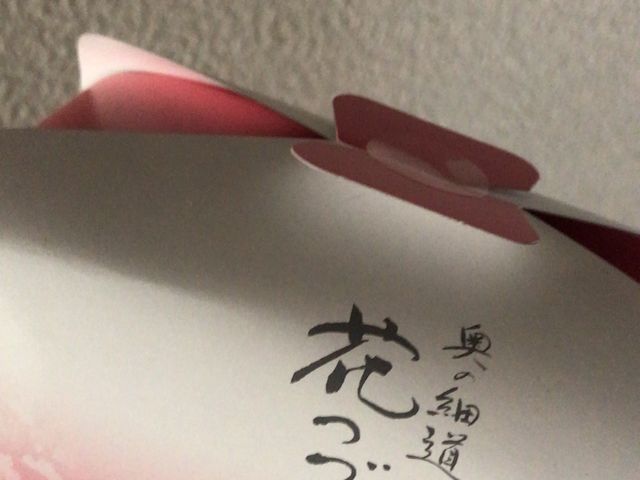 奥の細道
花つづ